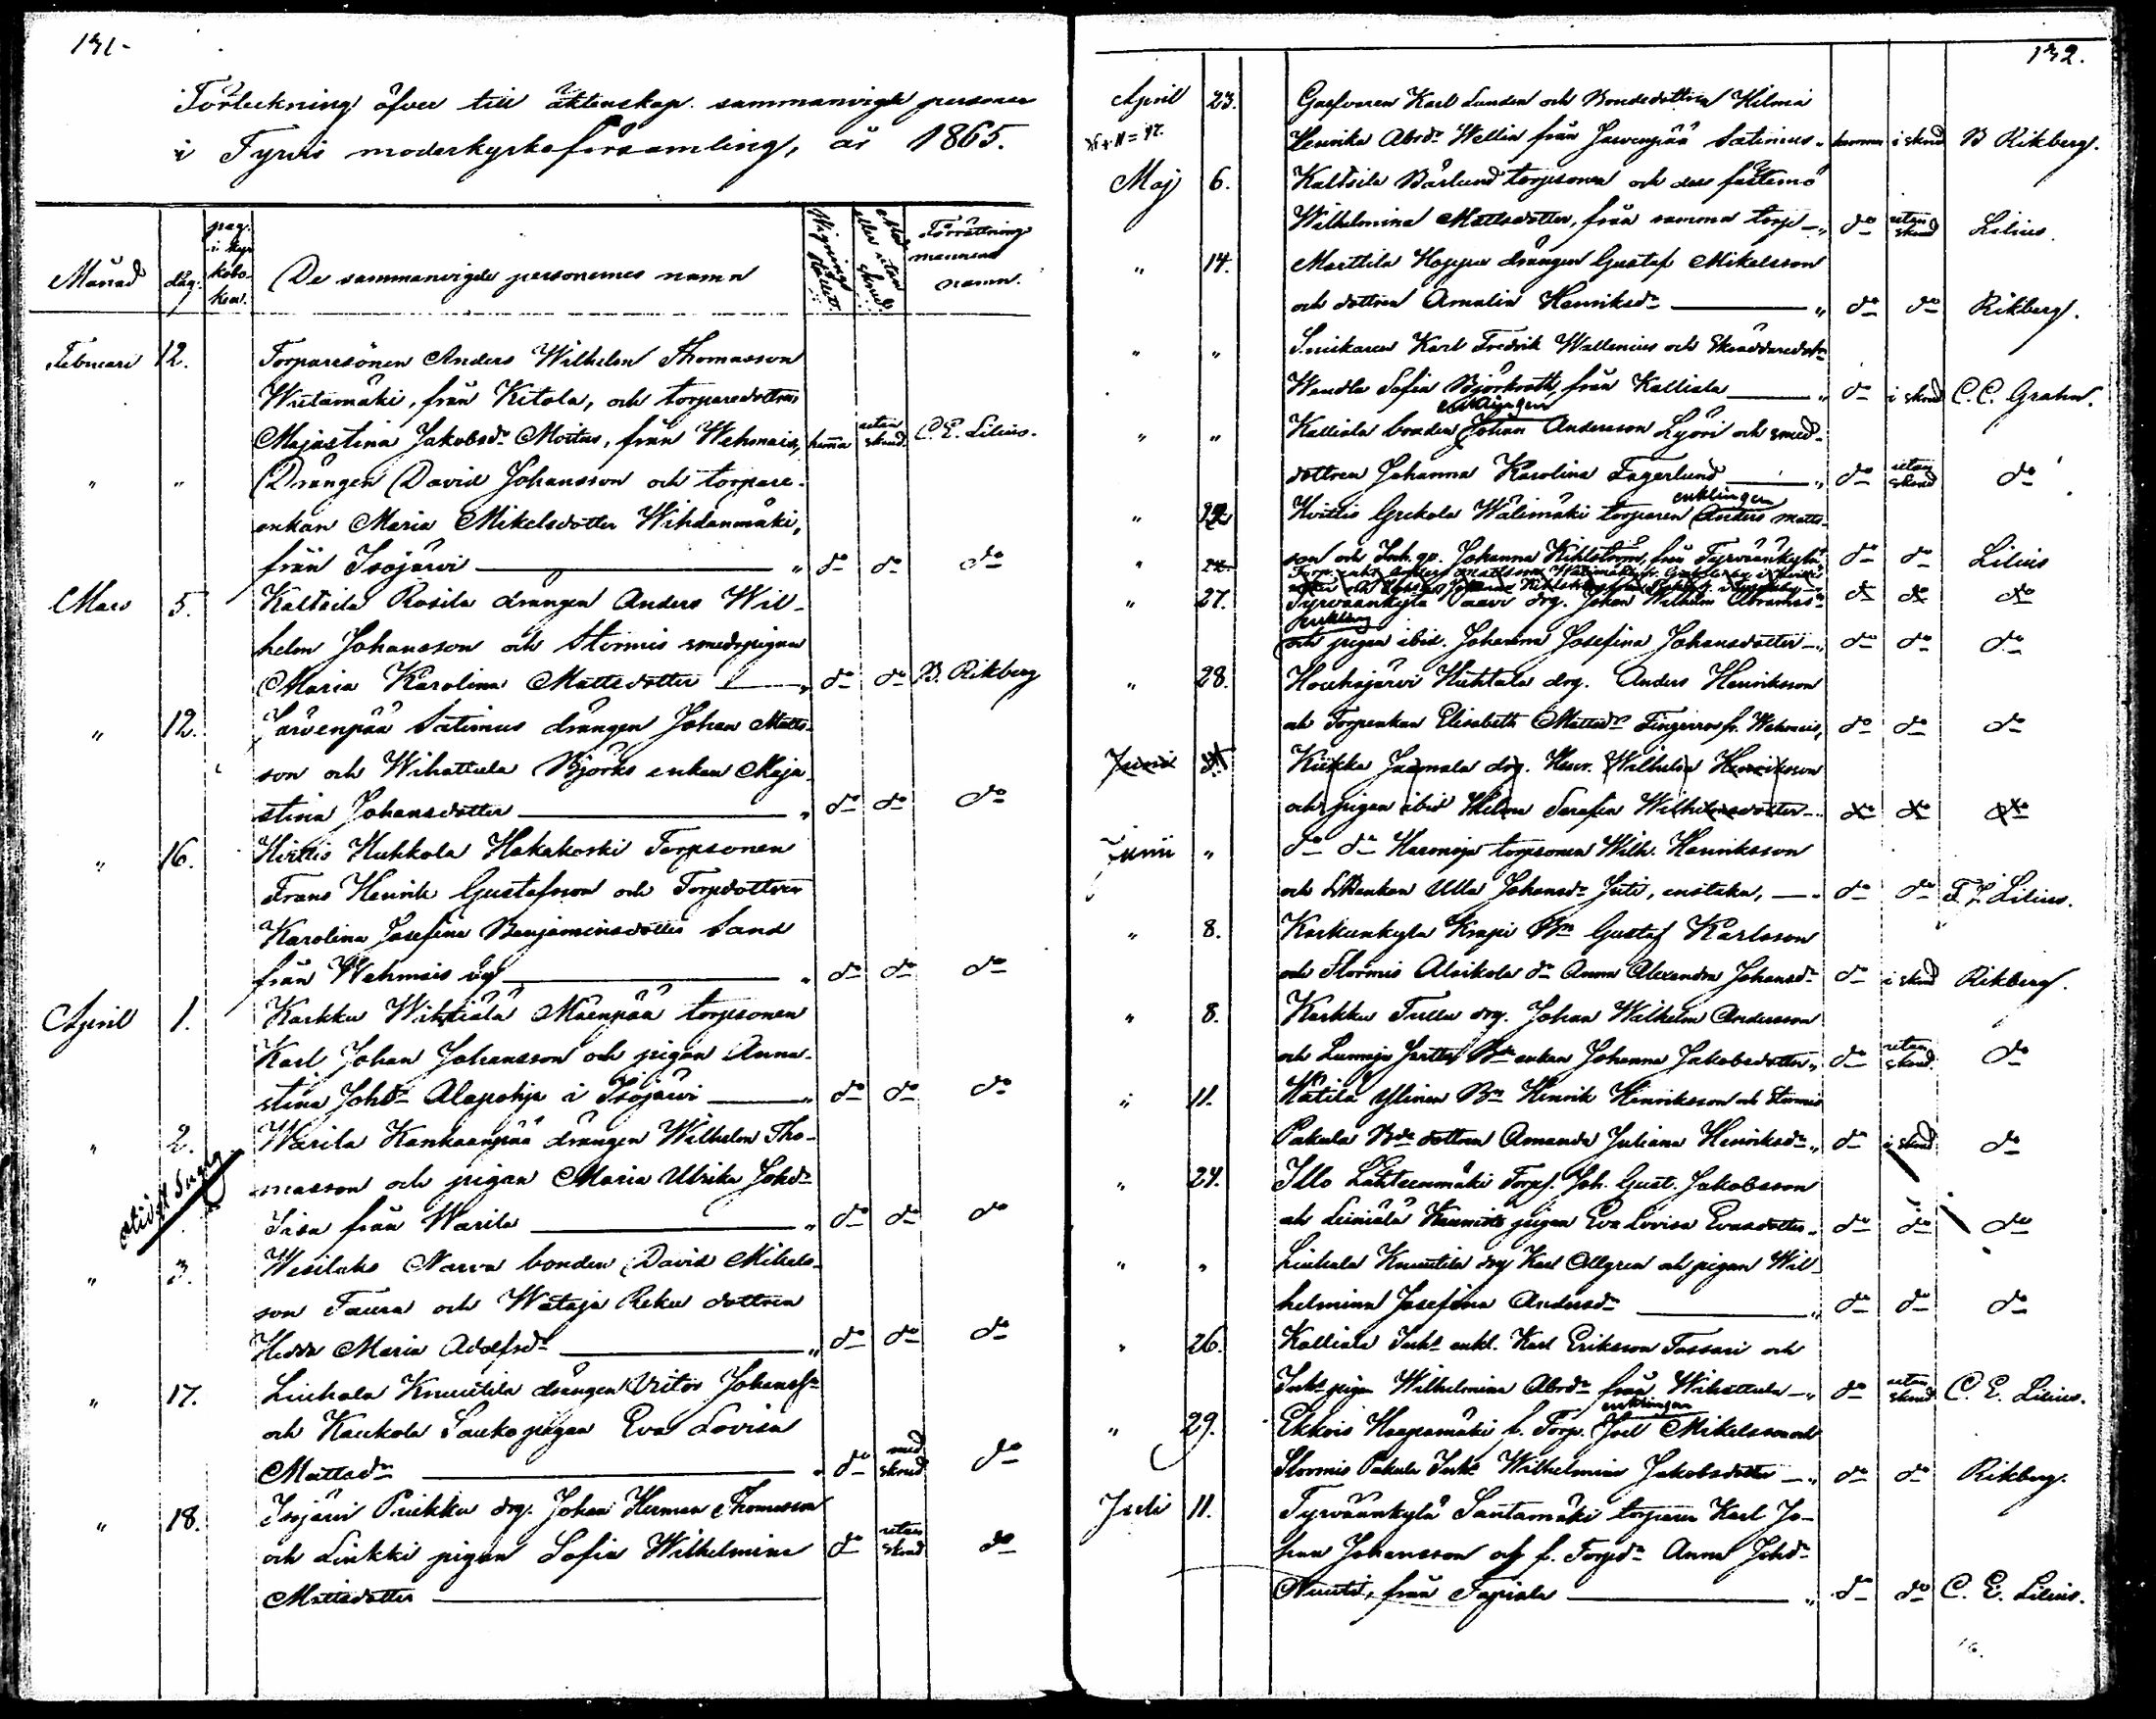 131.
Förteckning öfver till äktenskap sammanvigde personer
i Tyrvis moderkyrkoförsamling, år 1865.
Månad dag. pag. i kyrkoboken. De sammanvigde personernes namn Vigningsstället. Med eller utan skrud. Förrättningsmannens namn.
Februari 12. Torparesonen Anders Wilhelm Thomasson
från Kitola, och torparedottren
Majastina Jakobsdr Moitus, från Wehmais, hemma utan skrud C. E. Lilius.
" " Drängen David Johansson och torpare-
enkan Maria Mikelsdotter Wihdanmäki,
från Isojärvi " do do do
Mars 5. Kaltsila Rosila drängen Anders Wil-
helm Johansson och Stormis smedspigan
Maria Karolina Mattsdotter " do do B. Rikberg
" 12. Järvenpää Satimus drängen Johan Matts-
son och Wihattula Björks enkan Maja
stina Johansdotter " do do do
" 16. Hvittis Huhkola Hakakoski Torpsonen
Frans Henrik Gustafsson och Torpdottren
Karolina Josefina Benjaminsdotter Sand
från Wehmais by " do do do
April 1. Karkku Wihtiälä Mäenpää torpsonen
Karl Johan Johansson och pigan Anna-
stina Johdr Alapohja i Isojärvi " do do do
" 2. Warila Kankaanpää drängen Wilhelm Tho-
masson och pigan Maria Ulrika Johdr
från Warila " do do do
" 3. Wesilaks Narva bonden David Mikels-
son Taura och Wataja Reku dottren
Hedda Maria Adolfsdr " do do do
" 17. Liuhala Knuutila drängen Victor Johanss
och Kaukola Sauko pigan Eva Lovisa
Mattsdr " do med skrud do
" 18. Isojärvi Priekku drg. Johan Herman Thomasson
och Linkki pigan Sofia Wilhelmina do utan skrud do
Mattsdotter
132.
April 23. Garfvaren Karl Lunden och Bondedottren Hilma
Henrika Abrdr Wellin från Jarvenpää Satimus " hemma i skrud B Rikberg.
Maj 6. Kaltsila Bärlund torpsonen och dess fästemö
Wilhelmina Mattsdotter, från samma torp " do utan skrud Lilius.
" 14. Marttila Hoppu drängen Gustaf Mikelsson
och dottren Amalia Henriksdr " do do Rikberg.
" " Snickaren Karl Fredrik Wallenius och Skräddaredotr
Wendla Sofia Björkroth, från Kalliala " do i skrud C. E. Grahn.
enklingen
" " Kalliala bonden Johan Andersson Lyöri och smed-
dottren Johanna Karolina Fagerlund " do utan skrud do
enklingen
" Hvittis Grekola Wälimäki torparen Anders Matts-
son och Inh. qv. Johanna Kihlström, från Tyrväänkylä do do Lilius
" 27. Tyrväänkylä drg. Johan Wilhelm Abramss do do do
och pigan ibid. Johanna Josefina Johansdotter " do do do
" 28. Houhajärvi Huhtala drg. Anders Henriksson
och Torpenkan Elisabeth Mattsdr fr. Wehmais, do do do
Juni Kiikka Jaamala drg. Wilhelm Henriksson
och pigan ibid Serafia Wilhelmsdotter do do do
Junii " do do Haronoja torpsonen Wilh. Henriksson
och enkan Ulla Johansdr Juti, enstaka, do do F L Lilius.
" 8. Karkunkylä Krapi Bn Gustaf Karlsson
och Stormis Alvikola dr Anna Alexandra Johansdr do i skrud Rikberg.
" 8. Karkku Tulla drg. Johan Wilhelm Andersson
och Lumoja Jertta Bde enkan Johanna Jakobsdotter " do utan skrud. do
" 11. Hätilä Ylinen Bn Henrik Henriksson och Stormis
Pakula Bde dottren Amanda Juliana Henriksdr " do i skrud do
" 24. Illo Lähteenmäki Torps. Joh. Gust. Jakobsson
och Leiniälä pigan Eva Lovisa Evasdotter do do do
" " Liuhala Knuutila drg Karl Allgren och pigan Wil-
helmina Josefina Andersdr " do do do
" 26. Kalliala Inhs enkl. Karl Eriksson Tassari och
Inhs pigan Wilhelmina Abrdr från Wihattula " do utan skrud C. E. Lilius.
enklingen
" 29. Ekkois Haapamäki f. Torp. Joel Mikelsson och
Stormis Pakula Inhs Wilhelmina Jakobsdotter " do do Rikberg.
Juli 11. Tyrväänkylä Santamäki torparen Karl Jo-
han Johansson och f. Torpdr Anna Johdr
Nuuti, från Tapiala " do do C. E. Lilius.